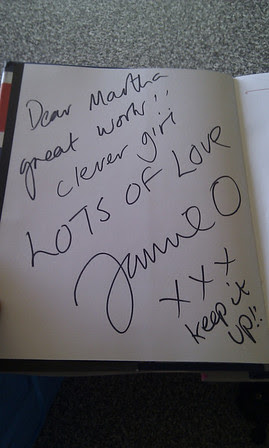 Dear Martha
great work!!
clever girl
LOTS OF LOVE
Jamie O
x x x
keep it
up!!